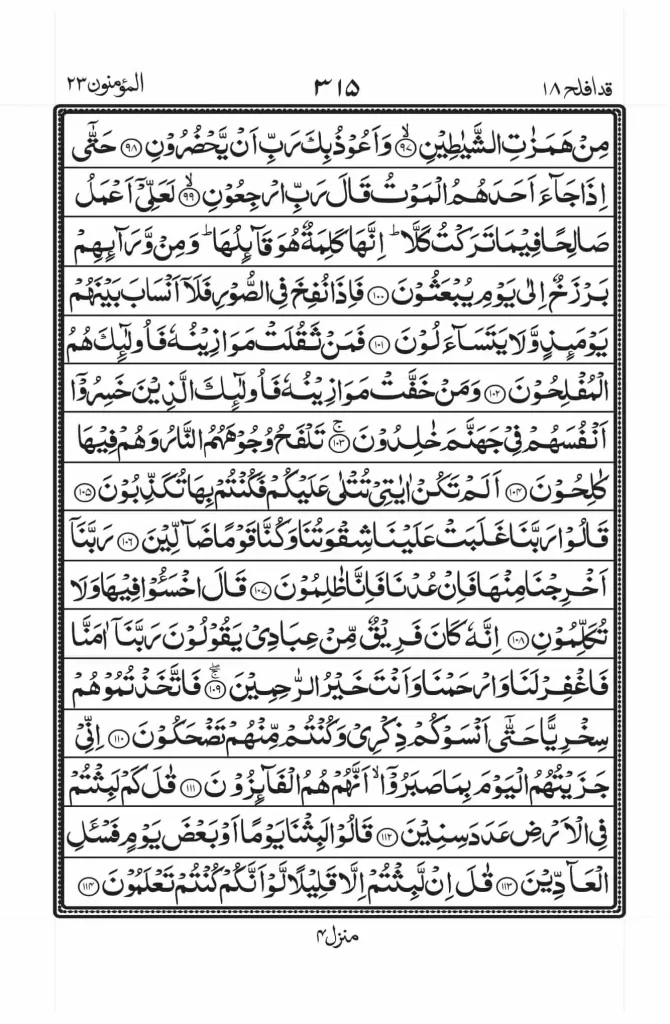 قد افلح ۱۸
۳۱۵
المؤمنون ۲۳
مِنْ هَمَزٰتِ الشَّیٰطِیْنِ ﴿۹۷﴾ۙ وَاَعُوْذُ بِكَ رَبِّ اَنْ یَّحْضُرُوْنِ ﴿۹۸﴾ حَتّٰۤی
اِذَا جَآءَ اَحَدَهُمُ الْمَوْتُ قَالَ رَبِّ ارْجِعُوْنِ ﴿۹۹﴾ۙ لَعَلِّیْۤ اَعْمَلُ
صَالِحًا فِیْمَا تَرَكْتُ كَلَّا ؕ اِنَّهَا كَلِمَةٌ هُوَ قَآىِٕلُهَا ؕ وَمِنْ وَّرَآىِٕهِمْ
بَرْزَخٌ اِلٰی یَوْمِ یُبْعَثُوْنَ ﴿۱۰۰﴾ فَاِذَا نُفِخَ فِی الصُّوْرِ فَلَاۤ اَنْسَابَ بَیْنَهُمْ
یَوْمَىِٕذٍ وَّلَا یَتَسَآءَلُوْنَ ﴿۱۰۱﴾ فَمَنْ ثَقُلَتْ مَوَازِیْنُهٗ فَاُولٰٓىِٕكَ هُمُ
الْمُفْلِحُوْنَ ﴿۱۰۲﴾ وَمَنْ خَفَّتْ مَوَازِیْنُهٗ فَاُولٰٓىِٕكَ الَّذِیْنَ خَسِرُوْۤا
اَنْفُسَهُمْ فِیْ جَهَنَّمَ خٰلِدُوْنَ ﴿۱۰۳﴾ۚ تَلْفَحُ وُجُوْهَهُمُ النَّارُ وَهُمْ فِیْهَا
كٰلِحُوْنَ ﴿۱۰۴﴾ اَلَمْ تَكُنْ اٰیٰتِیْ تُتْلٰی عَلَیْكُمْ فَكُنْتُمْ بِهَا تُكَذِّبُوْنَ ﴿۱۰۵﴾
قَالُوْا رَبَّنَا غَلَبَتْ عَلَیْنَا شِقْوَتُنَا وَكُنَّا قَوْمًا ضَآلِّیْنَ ﴿۱۰۶﴾ رَبَّنَاۤ
اَخْرِجْنَا مِنْهَا فَاِنْ عُدْنَا فَاِنَّا ظٰلِمُوْنَ ﴿۱۰۷﴾ قَالَ اخْسَـُٔوْا فِیْهَا وَلَا
تُكَلِّمُوْنِ ﴿۱۰۸﴾ اِنَّهٗ كَانَ فَرِیْقٌ مِّنْ عِبَادِیْ یَقُوْلُوْنَ رَبَّنَاۤ اٰمَنَّا
فَاغْفِرْ لَنَا وَارْحَمْنَا وَاَنْتَ خَیْرُ الرّٰحِمِیْنَ ﴿۱۰۹﴾ۚۖ فَاتَّخَذْتُمُوْهُمْ
سِخْرِیًّا حَتّٰۤی اَنْسَوْكُمْ ذِكْرِیْ وَكُنْتُمْ مِّنْهُمْ تَضْحَكُوْنَ ﴿۱۱۰﴾ اِنِّیْ
جَزَیْتُهُمُ الْیَوْمَ بِمَا صَبَرُوْۤا ۙ اَنَّهُمْ هُمُ الْفَآىِٕزُوْنَ ﴿۱۱۱﴾ قٰلَ كَمْ لَبِثْتُمْ
فِی الْاَرْضِ عَدَدَ سِنِیْنَ ﴿۱۱۲﴾ قَالُوْا لَبِثْنَا یَوْمًا اَوْ بَعْضَ یَوْمٍ فَسْـَٔلِ
الْعَآدِّیْنَ ﴿۱۱۳﴾ قٰلَ اِنْ لَّبِثْتُمْ اِلَّا قَلِیْلًا لَّوْ اَنَّكُمْ كُنْتُمْ تَعْلَمُوْنَ ﴿۱۱۴﴾
منزل ۴